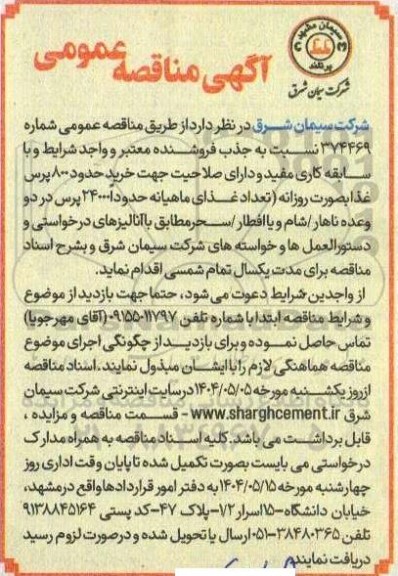 آگهی مناقصه عمومی
سیمان مشهد
شرکت سیمان شرق
شرکت سیمان شرق در نظر دارد از طریق مناقصه عمومی شماره
۳۷۴۴۶۹ نسبت به جذب فروشنده معتبر و واجد شرایط و با
سابقه کاری مفید و دارای صلاحیت جهت خرید حدود ۸۰۰ پرس
غذا بصورت روزانه (تعداد غذای ماهیانه حدودا ۲۴۰۰۰ پرس در دو
وعده ناهار/شام و یا افطار/سحر مطابق با آنالیزهای درخواستی و
دستورالعمل ها و خواسته های شرکت سیمان شرق و بشرح اسناد
مناقصه برای مدت یکسال تمام شمسی اقدام نماید.
از واجدین شرایط دعوت می شود، حتما جهت بازدید از موضوع
و شرایط مناقصه ابتدا با شماره تلفن ۰۹۱۵۵۰۱۱۷۹۷ (آقای مهرجویا)
تماس حاصل نموده و برای بازدید از چگونگی اجرای موضوع
مناقصه هماهنگی لازم را با ایشان مبذول نمایند. اسناد مناقصه
از روز یکشنبه مورخه ۱۴۰۴/۰۵/۰۵ در سایت اینترنتی شرکت سیمان
شرق www.sharghcement.ir - قسمت مناقصه و مزایده ،
قابل برداشت می باشد. کلیه اسناد مناقصه به همراه مدارک
درخواستی می بایست بصورت تکمیل شده تا پایان وقت اداری روز
چهارشنبه مورخه ۱۴۰۴/۰۵/۱۵ به دفتر امور قراردادها واقع در مشهد،
خیابان دانشگاه-۱۵ اسرار ۱/۲- پلاک ۴۷- کد پستی ۹۱۳۸۸۴۵۱۶۴
تلفن ۳۸۴۸۰۳۶۵-۰۵۱ ارسال یا تحویل شده و در صورت لزوم رسید
دریافت نمایند.